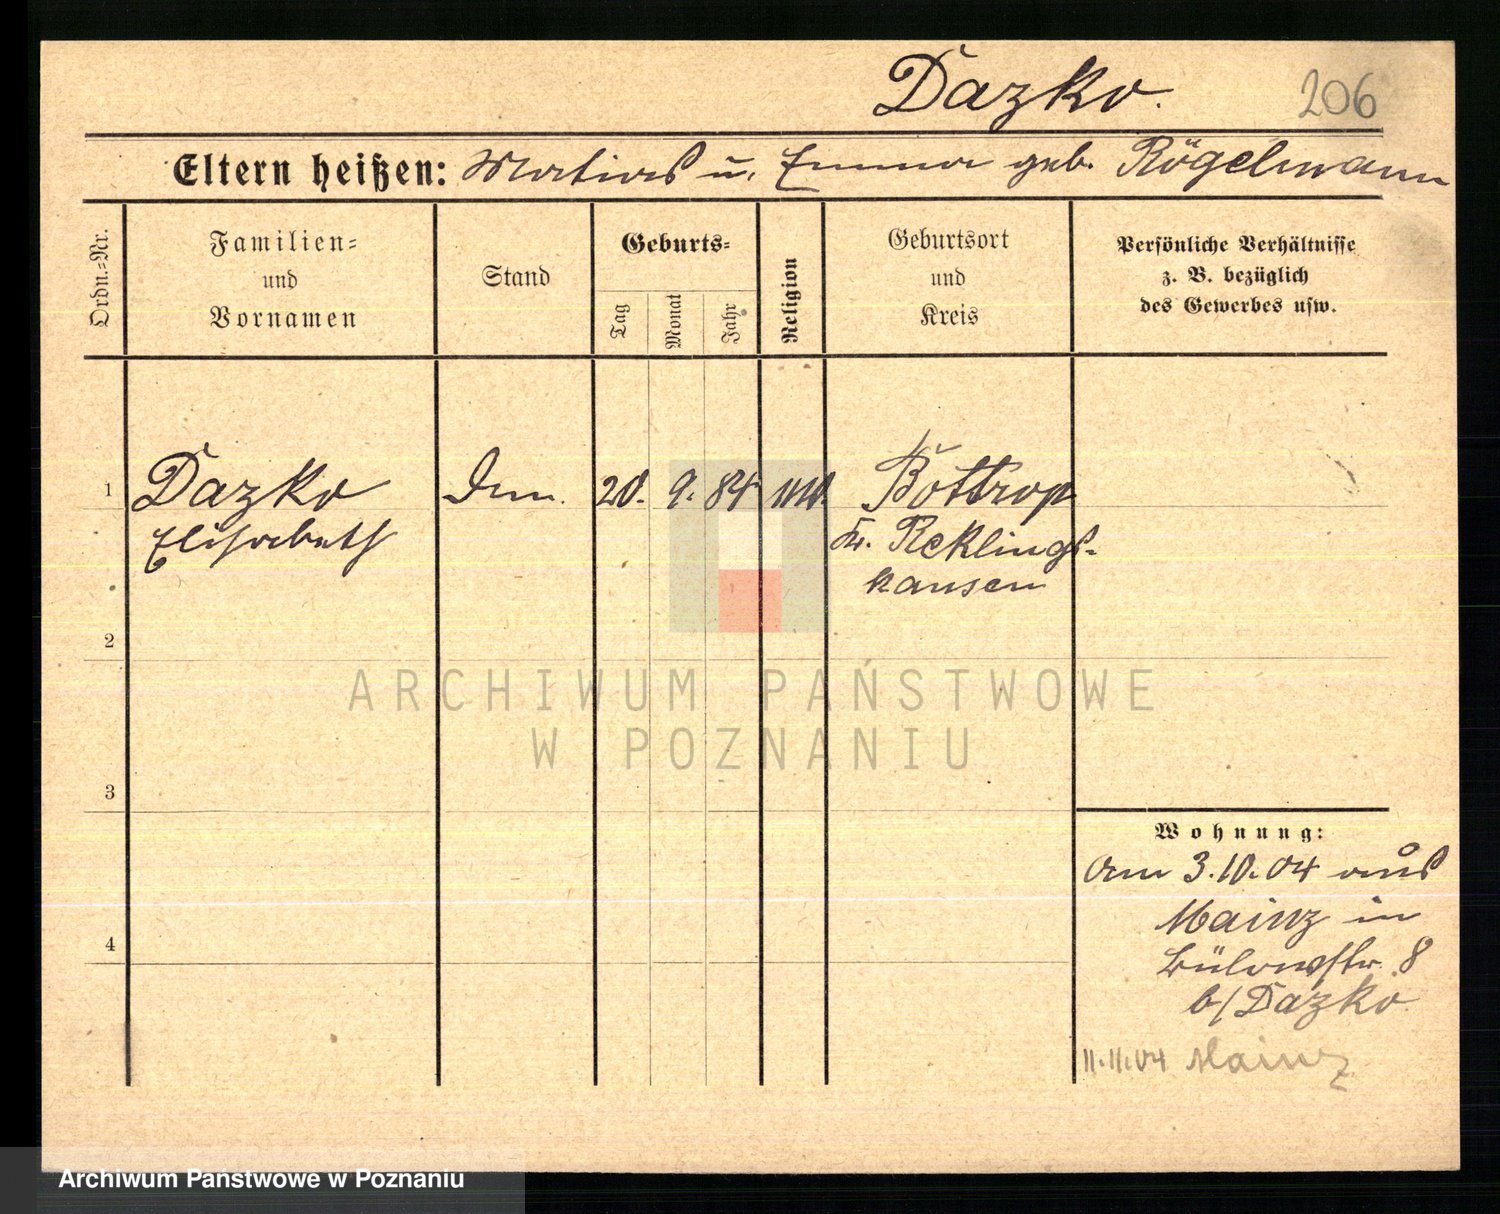 Dazko. 206
Eltern heißen: Matias u. Emma geb. Rögelmann
Ordn.=Nr.
Familien=
und
Vornamen
Stand
Geburts=
Tag
Monat
Jahr
Religion
Geburtsort
und
Kreis
Persönliche Verhältnisse
z. B. bezüglich
des Gewerbes usw.
1 Dazko 20. 9. 84 Bottrop
Elisabeth Kr. Reklings-
hausen
2
3
4
Wohnung:
Am 3.10.04 aus
Mainz in
Bülowstr. 8
b/Dazko
11.11.04 Mainz
ARCHIWUM PAŃSTWOWE
W POZNANIU
Archiwum Państwowe w Poznaniu